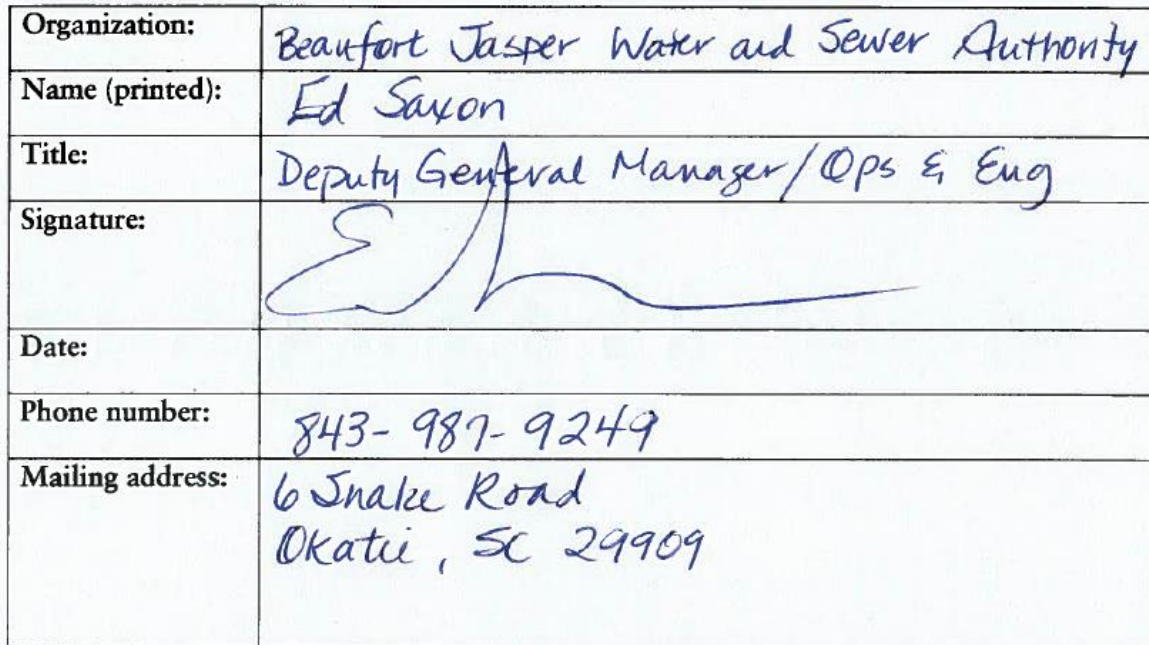 Organization: Beaufort Jasper Water and Sewer Authority
Name (printed): Ed Saxon
Title: Deputy General Manager/Ops & Eng
Signature:
Date:
Phone number: 843-987-9249
Mailing address: 6 Snake Road
Okatie, SC 29909